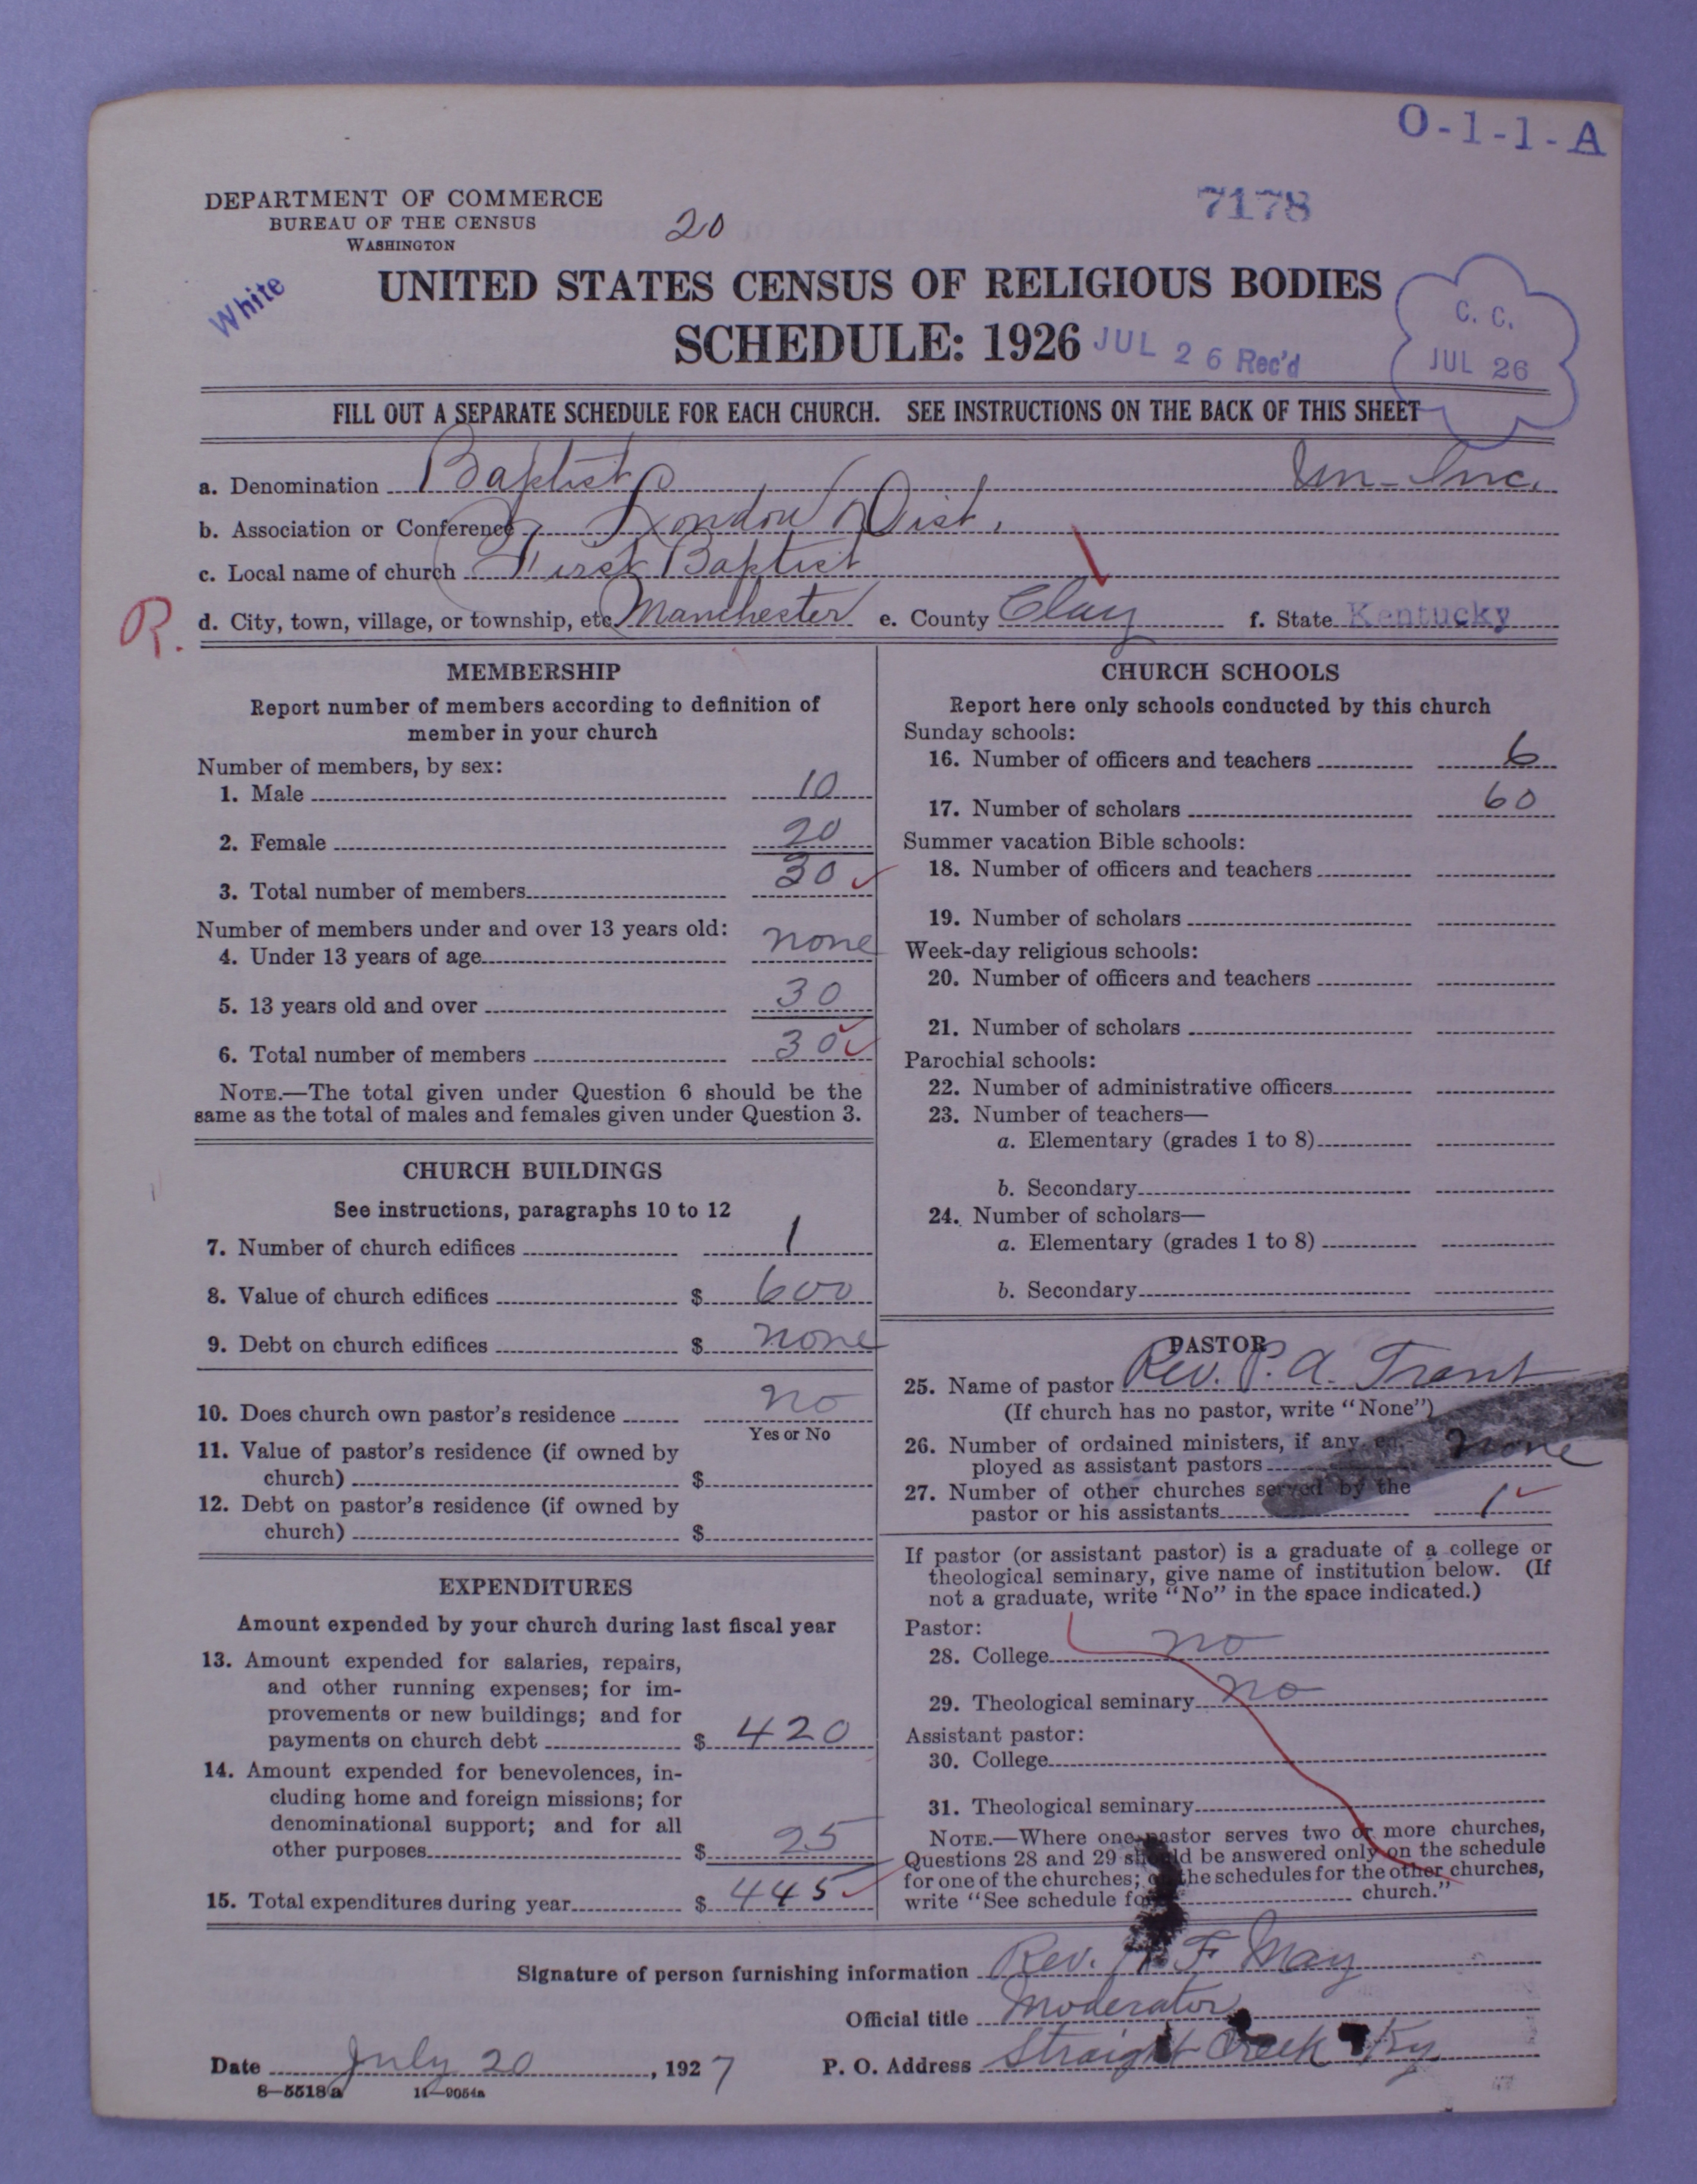 O-1-1-A
DEPARTMENT OF COMMERCE
BUREAU OF THE CENSUS
WASHINGTON
20
7178
White
UNITED STATES CENSUS OF RELIGIOUS BODIES
SCHEDULE: 1926
JUL 26 Rec'd
C. C.
JUL 26
FILL OUT A SEPARATE SCHEDULE FOR EACH CHURCH. SEE INSTRUCTIONS ON THE BACK OF THIS SHEET
a. Denomination Baptist Un-Inc.
b. Association or Conference London Dist.
c. Local name of church First Baptist
R. d. City, town, village, or township, etc. Manchester e. County Clay f. State Kentucky
MEMBERSHIP
Report number of members according to definition of
member in your church
Number of members, by sex:
1. Male 10
2. Female 20
3. Total number of members 30
Number of members under and over 13 years old:
4. Under 13 years of age none
5. 13 years old and over 30
6. Total number of members 30
NOTE.—The total given under Question 6 should be the
same as the total of males and females given under Question 3.
CHURCH BUILDINGS
See instructions, paragraphs 10 to 12
7. Number of church edifices 1
8. Value of church edifices $ 600
9. Debt on church edifices $ none
10. Does church own pastor's residence no
Yes or No
11. Value of pastor's residence (if owned by
church) $
12. Debt on pastor's residence (if owned by
church) $
EXPENDITURES
Amount expended by your church during last fiscal year
13. Amount expended for salaries, repairs,
and other running expenses; for im-
provements or new buildings; and for
payments on church debt $ 420
14. Amount expended for benevolences, in-
cluding home and foreign missions; for
denominational support; and for all
other purposes $ 25
15. Total expenditures during year $ 445
CHURCH SCHOOLS
Report here only schools conducted by this church
Sunday schools:
16. Number of officers and teachers 6
17. Number of scholars 60
Summer vacation Bible schools:
18. Number of officers and teachers
19. Number of scholars
Week-day religious schools:
20. Number of officers and teachers
21. Number of scholars
Parochial schools:
22. Number of administrative officers
23. Number of teachers—
a. Elementary (grades 1 to 8)
b. Secondary
24. Number of scholars—
a. Elementary (grades 1 to 8)
b. Secondary
PASTOR
25. Name of pastor Rev. P. A. Trent
(If church has no pastor, write "None")
26. Number of ordained ministers, if any, em-
ployed as assistant pastors none
27. Number of other churches served by the
pastor or his assistants 1
If pastor (or assistant pastor) is a graduate of a college or
theological seminary, give name of institution below. (If
not a graduate, write "No" in the space indicated.)
Pastor:
28. College no
29. Theological seminary no
Assistant pastor:
30. College
31. Theological seminary
NOTE.—Where one pastor serves two or more churches,
Questions 28 and 29 should be answered only on the schedule
for one of the churches; on the schedules for the other churches,
write "See schedule for church."
Signature of person furnishing information Rev. F May
Official title Moderator
Date July 20, 1927 P. O. Address Straight Creek Ky
8—5518a 11—9054a